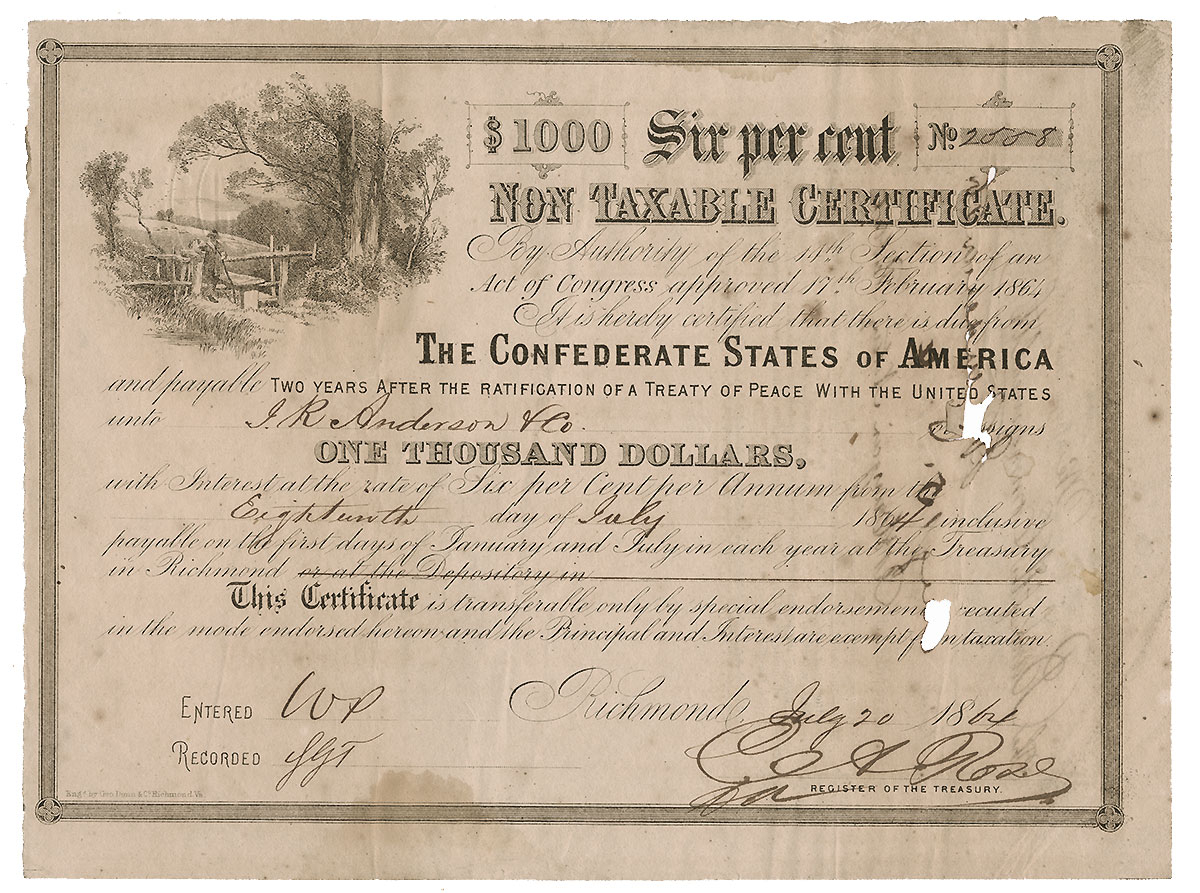 $ 1000 Six per cent No. 2558
NON TAXABLE CERTIFICATE.
By Authority of the 14th Section of an
Act of Congress approved 17th February 1864
It is hereby certified that there is due from
THE CONFEDERATE STATES OF AMERICA
and payable TWO YEARS AFTER THE RATIFICATION OF A TREATY OF PEACE WITH THE UNITED STATES
unto J. R Anderson & Co. or assigns
ONE THOUSAND DOLLARS,
with Interest at the rate of Six per Cent per Annum from the
Eighteenth day of July 1864 inclusive
payable on the first days of January and July in each year at the Treasury
in Richmond or at the Depository in
This Certificate is transferable only by special endorsement executed
in the mode endorsed hereon and the Principal and Interest are exempt from taxation.
ENTERED
Richmond, July 20 1864
RECORDED
REGISTER OF THE TREASURY.
Engd. by Geo Dunn & Co. Richmond, Va.